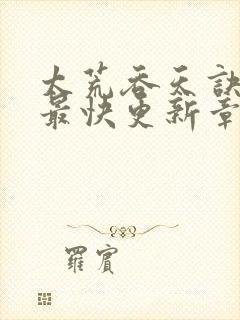 大荒吞天訣
最快更新章
羅賓